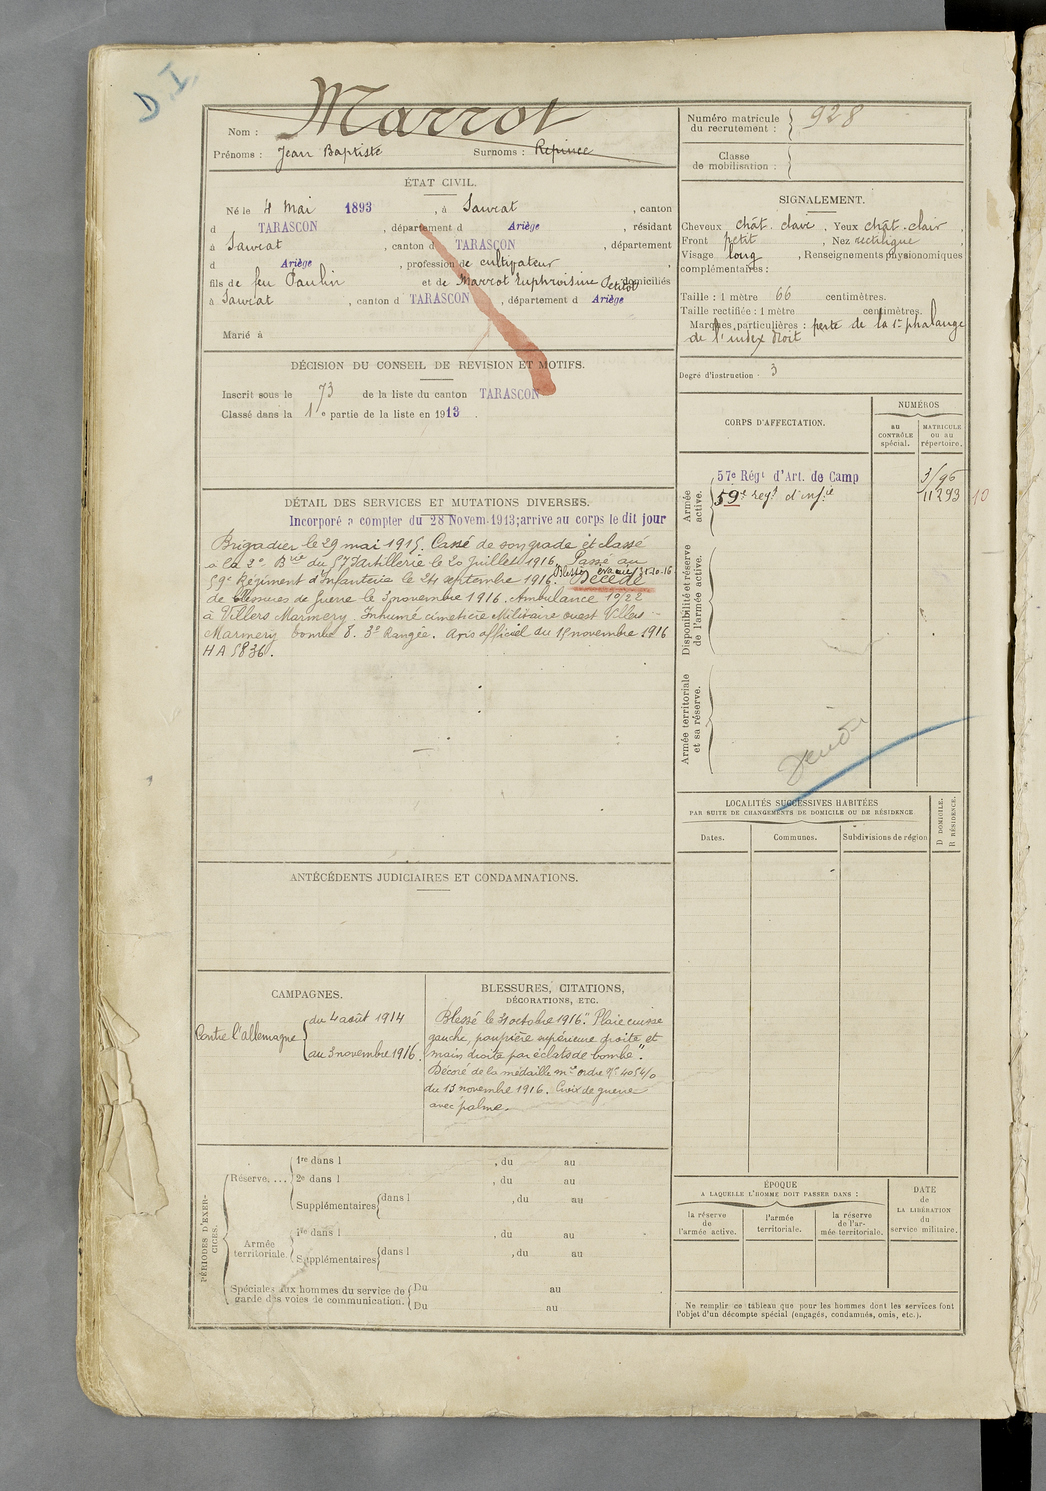 D.I.
Nom : Marrot
Prénoms : Jean Baptiste Surnoms :
ÉTAT CIVIL.
Né le 4 Mai 1893, à Saurat, canton
d TARASCON, département d Ariège, résidant
à Saurat, canton d TARASCON, département
d Ariège, profession de cultivateur
fils de feu Paulin et de Marrot Euphroisine Petitot domiciliés
à Saurat, canton d TARASCON, département d Ariège
Marié à
DÉCISION DU CONSEIL DE REVISION ET MOTIFS.
Inscrit sous le n° 73 de la liste du canton TARASCON
Classé dans la 1e partie de la liste en 1913.
DÉTAIL DES SERVICES ET MUTATIONS DIVERSES.
Incorporé à compter du 28 Novem. 1913; arrive au corps le dit jour
Brigadier le 29 mai 1915. Cassé de son grade et classé
à la 2e Brie du 57 d'artillerie le 20 Juillet 1916. Passé au
59e Régiment d'Infanterie le 24 septembre 1916. Blessé, évacué 31-10-16 Décédé
de blessures de Guerre le 3 novembre 1916. Ambulance 10/22
à Villers Marmery. Inhumé cimetière Militaire ouest Villers-
Marmery tombe 8. 3e Rangée. Avis officiel du 15 novembre 1916
HA 5836.
ANTÉCÉDENTS JUDICIAIRES ET CONDAMNATIONS.
CAMPAGNES.
Contre l'allemagne
du 4 août 1914
au 3 novembre 1916.
BLESSURES, CITATIONS,
DÉCORATIONS, ETC.
Blessé le 31 octobre 1916 "Plaie cuisse
gauche, paupière supérieure droite et
main droite par éclats de bombe".
Décoré de la médaille mre ordre No 4054/o
du 13 novembre 1916. Croix de guerre
avec palme.
PÉRIODES D'EXER-
CICES.
Réserve....
1re dans l , du au
2e dans l , du au
Supplémentaires dans l , du au
Armée
territoriale.
1re dans l , du au
Supplémentaires dans l , du au
Spéciales aux hommes du service de
garde des voies de communication.
Du au
Du au
Numéro matricule
du recrutement : 928
Classe
de mobilisation :
SIGNALEMENT.
Cheveux chât. clair. Yeux chât. clair,
Front petit, Nez rectiligne
Visage long, Renseignements physionomiques
complémentaires :
Taille : 1 mètre 66 centimètres.
Taille rectifiée : 1 mètre centimètres.
Marques particulières : perte de la 1re phalange
de l'index droit
Degré d'instruction : 3
CORPS D'AFFECTATION.
NUMÉROS
au
CONTRÔLE
spécial.
MATRICULE
ou au
répertoire.
Armée
active.
57e Régt d'Art. de Camp 3/96
59e régt d'infie 11293 10
Disponibilité et réserve
de l'armée active.
Armée territoriale
et sa réserve.
LOCALITÉS SUCCESSIVES HABITÉES
PAR SUITE DE CHANGEMENTS DE DOMICILE OU DE RÉSIDENCE
Dates. Communes. Subdivisions de région
D DOMICILE.
R RÉSIDENCE.
ÉPOQUE
A LAQUELLE L'HOMME DOIT PASSER DANS :
la réserve
de
l'armée active.
l'armée
territoriale.
la réserve
de l'ar-
mée territoriale.
DATE
de
LA LIBÉRATION
du
service militaire.
Ne remplir ce tableau que pour les hommes dont les services font
l'objet d'un décompte spécial (engagés, condamnés, omis, etc.).